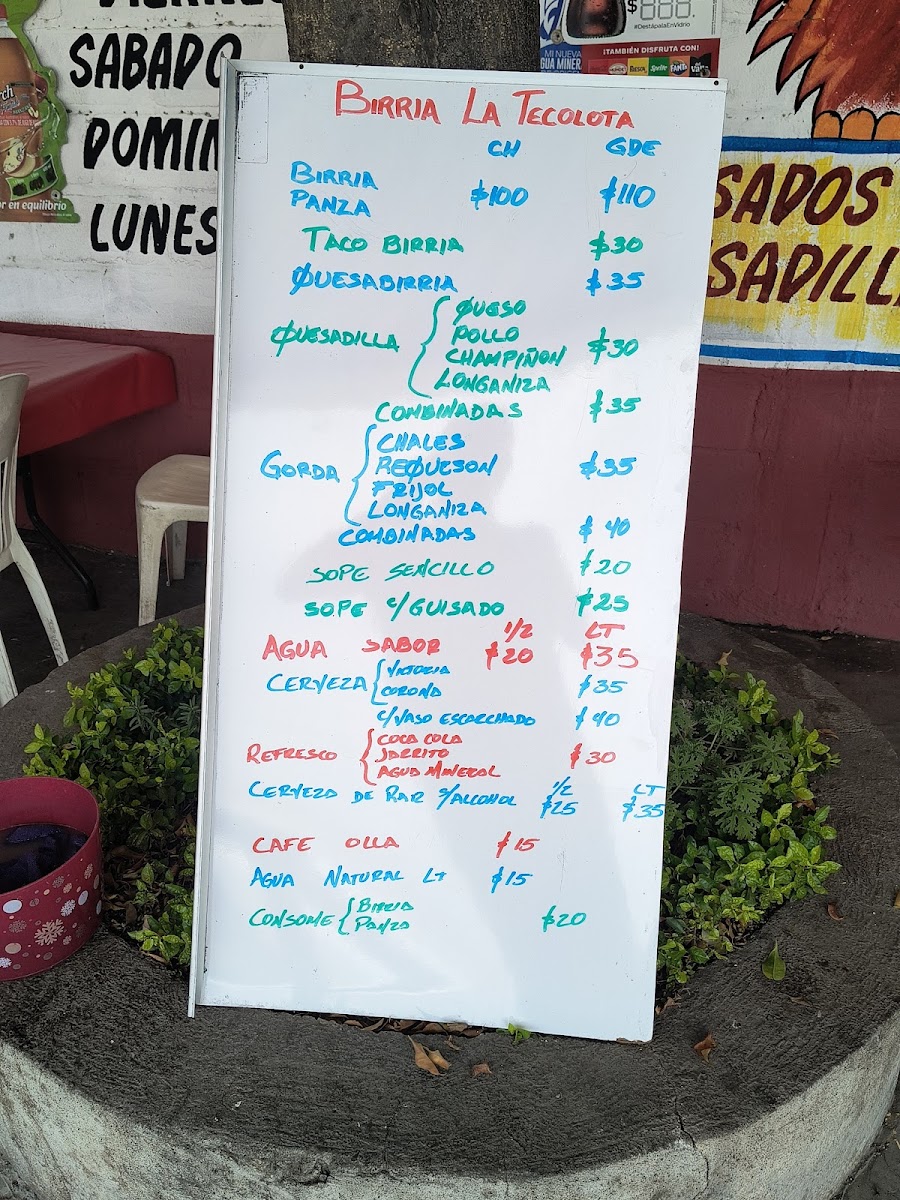 SABADO
DOMIN
LUNES
r en equilibrio
$888
#DestápalaEnVidrio
MI NUEVA
GUA MINER
¡TAMBIÉN DISFRUTA CON!
Sprite
FANTA
SADOS
SADILL
BIRRIA LA TECOLOTA
CH GDE
BIRRIA
PANZA $100 $110
TACO BIRRIA $30
QUESABIRRIA $35
QUESADILLA { QUESO
POLLO
CHAMPIÑON
LONGANIZA $30
COMBINADAS $35
GORDA { CHALES
REQUESON
FRIJOL
LONGANIZA $35
COMBINADAS $40
SOPE SENCILLO $20
SOPE C/GUISADO $25
1/2 LT
AGUA SABOR $20 $35
CERVEZA { VICTORIA
CORONA $35
C/VASO ESCARCHADO $40
REFRESCO { COCA COLA
JARRITO
AGUA MINERAL $30
CERVEZA DE RAIZ S/ALCOHOL 1/2 $25 LT $35
CAFE OLLA $15
AGUA NATURAL LT $15
CONSOME { BIRRIA
PANZA $20